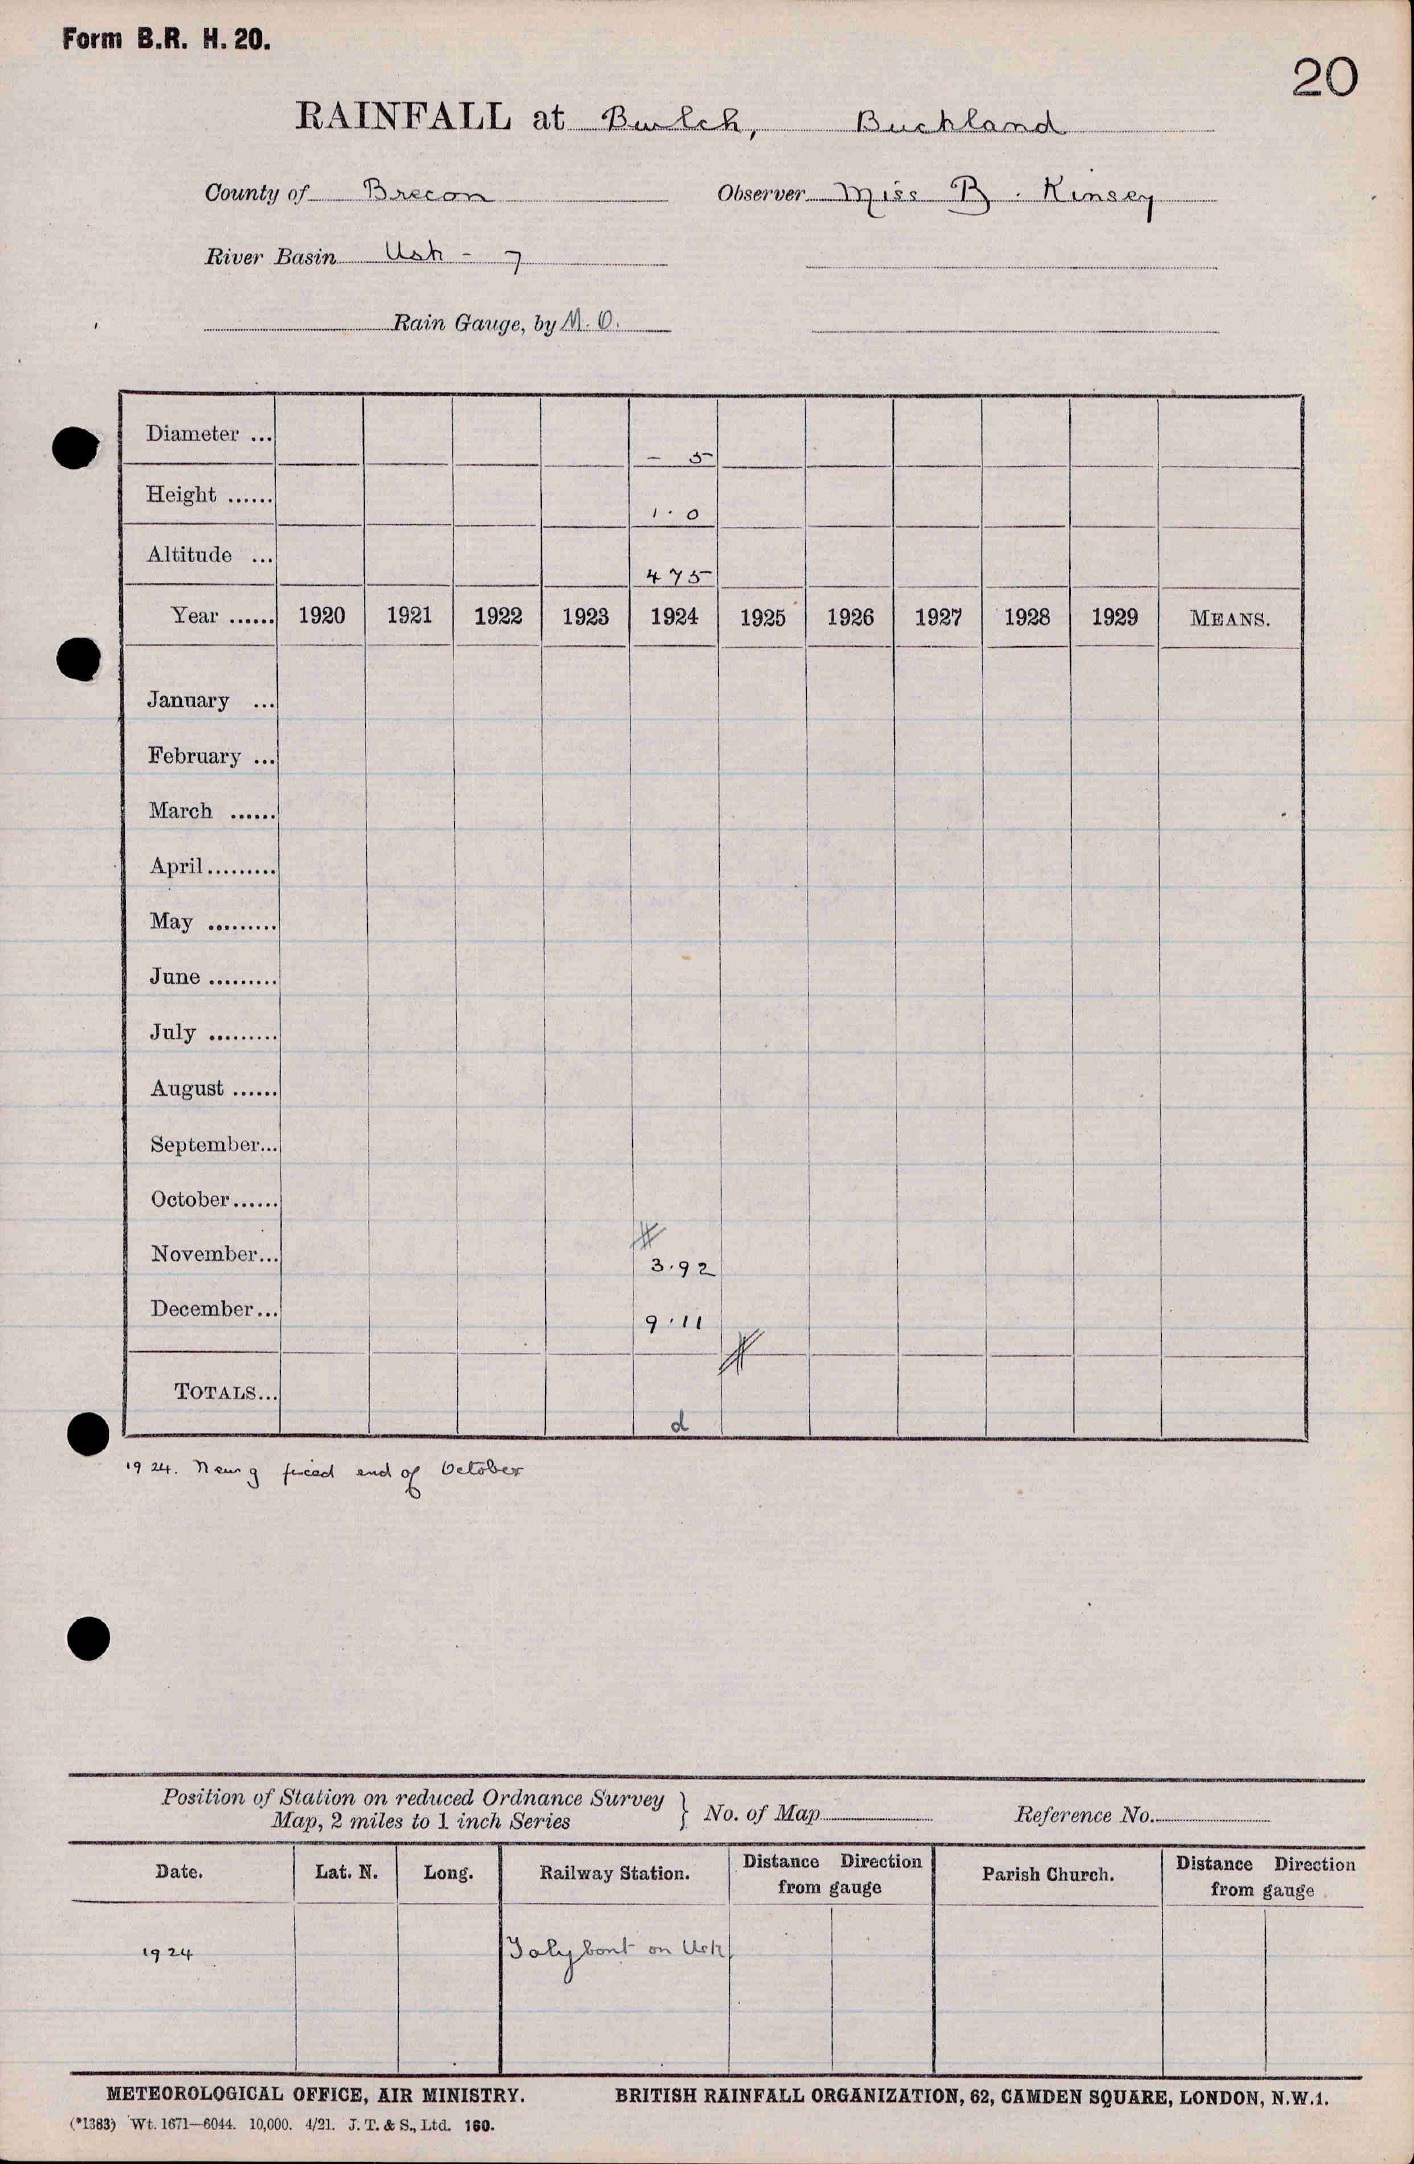 Form B.R. H. 20.
20
RAINFALL at Bwlch, Buckland
County of Brecon Observer Miss B. Kinsey
River Basin Usk - 7
Rain Gauge, by M. O.
Diameter ... - 5
Height ...... 1.0
Altitude ... 475
Year ...... 1920 1921 1922 1923 1924 1925 1926 1927 1928 1929 MEANS.
January ...
February ...
March ......
April.........
May .........
June .........
July .........
August ......
September...
October......
November... 3.92
December... 9.11
TOTALS... d
1924. New g fixed end of October
Position of Station on reduced Ordnance Survey
Map, 2 miles to 1 inch Series } No. of Map Reference No.
Date. Lat. N. Long. Railway Station. Distance Direction from gauge Parish Church. Distance Direction from gauge
1924 Talybont on Usk
METEOROLOGICAL OFFICE, AIR MINISTRY. BRITISH RAINFALL ORGANIZATION, 62, CAMDEN SQUARE, LONDON, N.W.1.
(*1383) Wt. 1671—6044. 10,000. 4/21. J. T. & S., Ltd. 160.